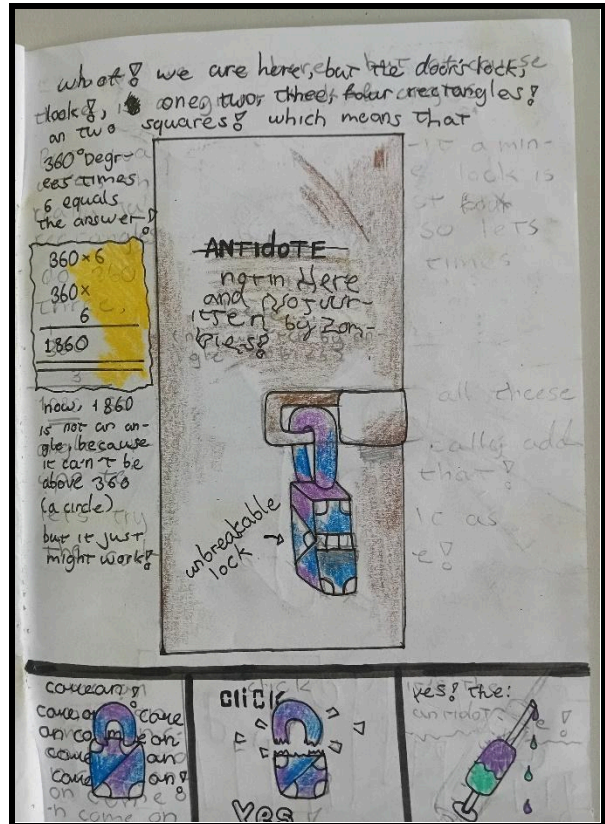 what! we are here, but the door's lock,
look!, is one, two, three, four rectangles!
an two squares! which means that
360° Degr-
ees times
6 equals
the answer!
360 × 6
360 ×
6
1860
now, 1860
is not an an-
gle, because
it can't be
above 360
(a circle)
but it just
might work!
ANTidoTE
not in Here
and
by zom-
bies!
unbreakable
lock
come on!
come on come
on come on
come on
come on!
click
Yes
yes! the:
antidote!